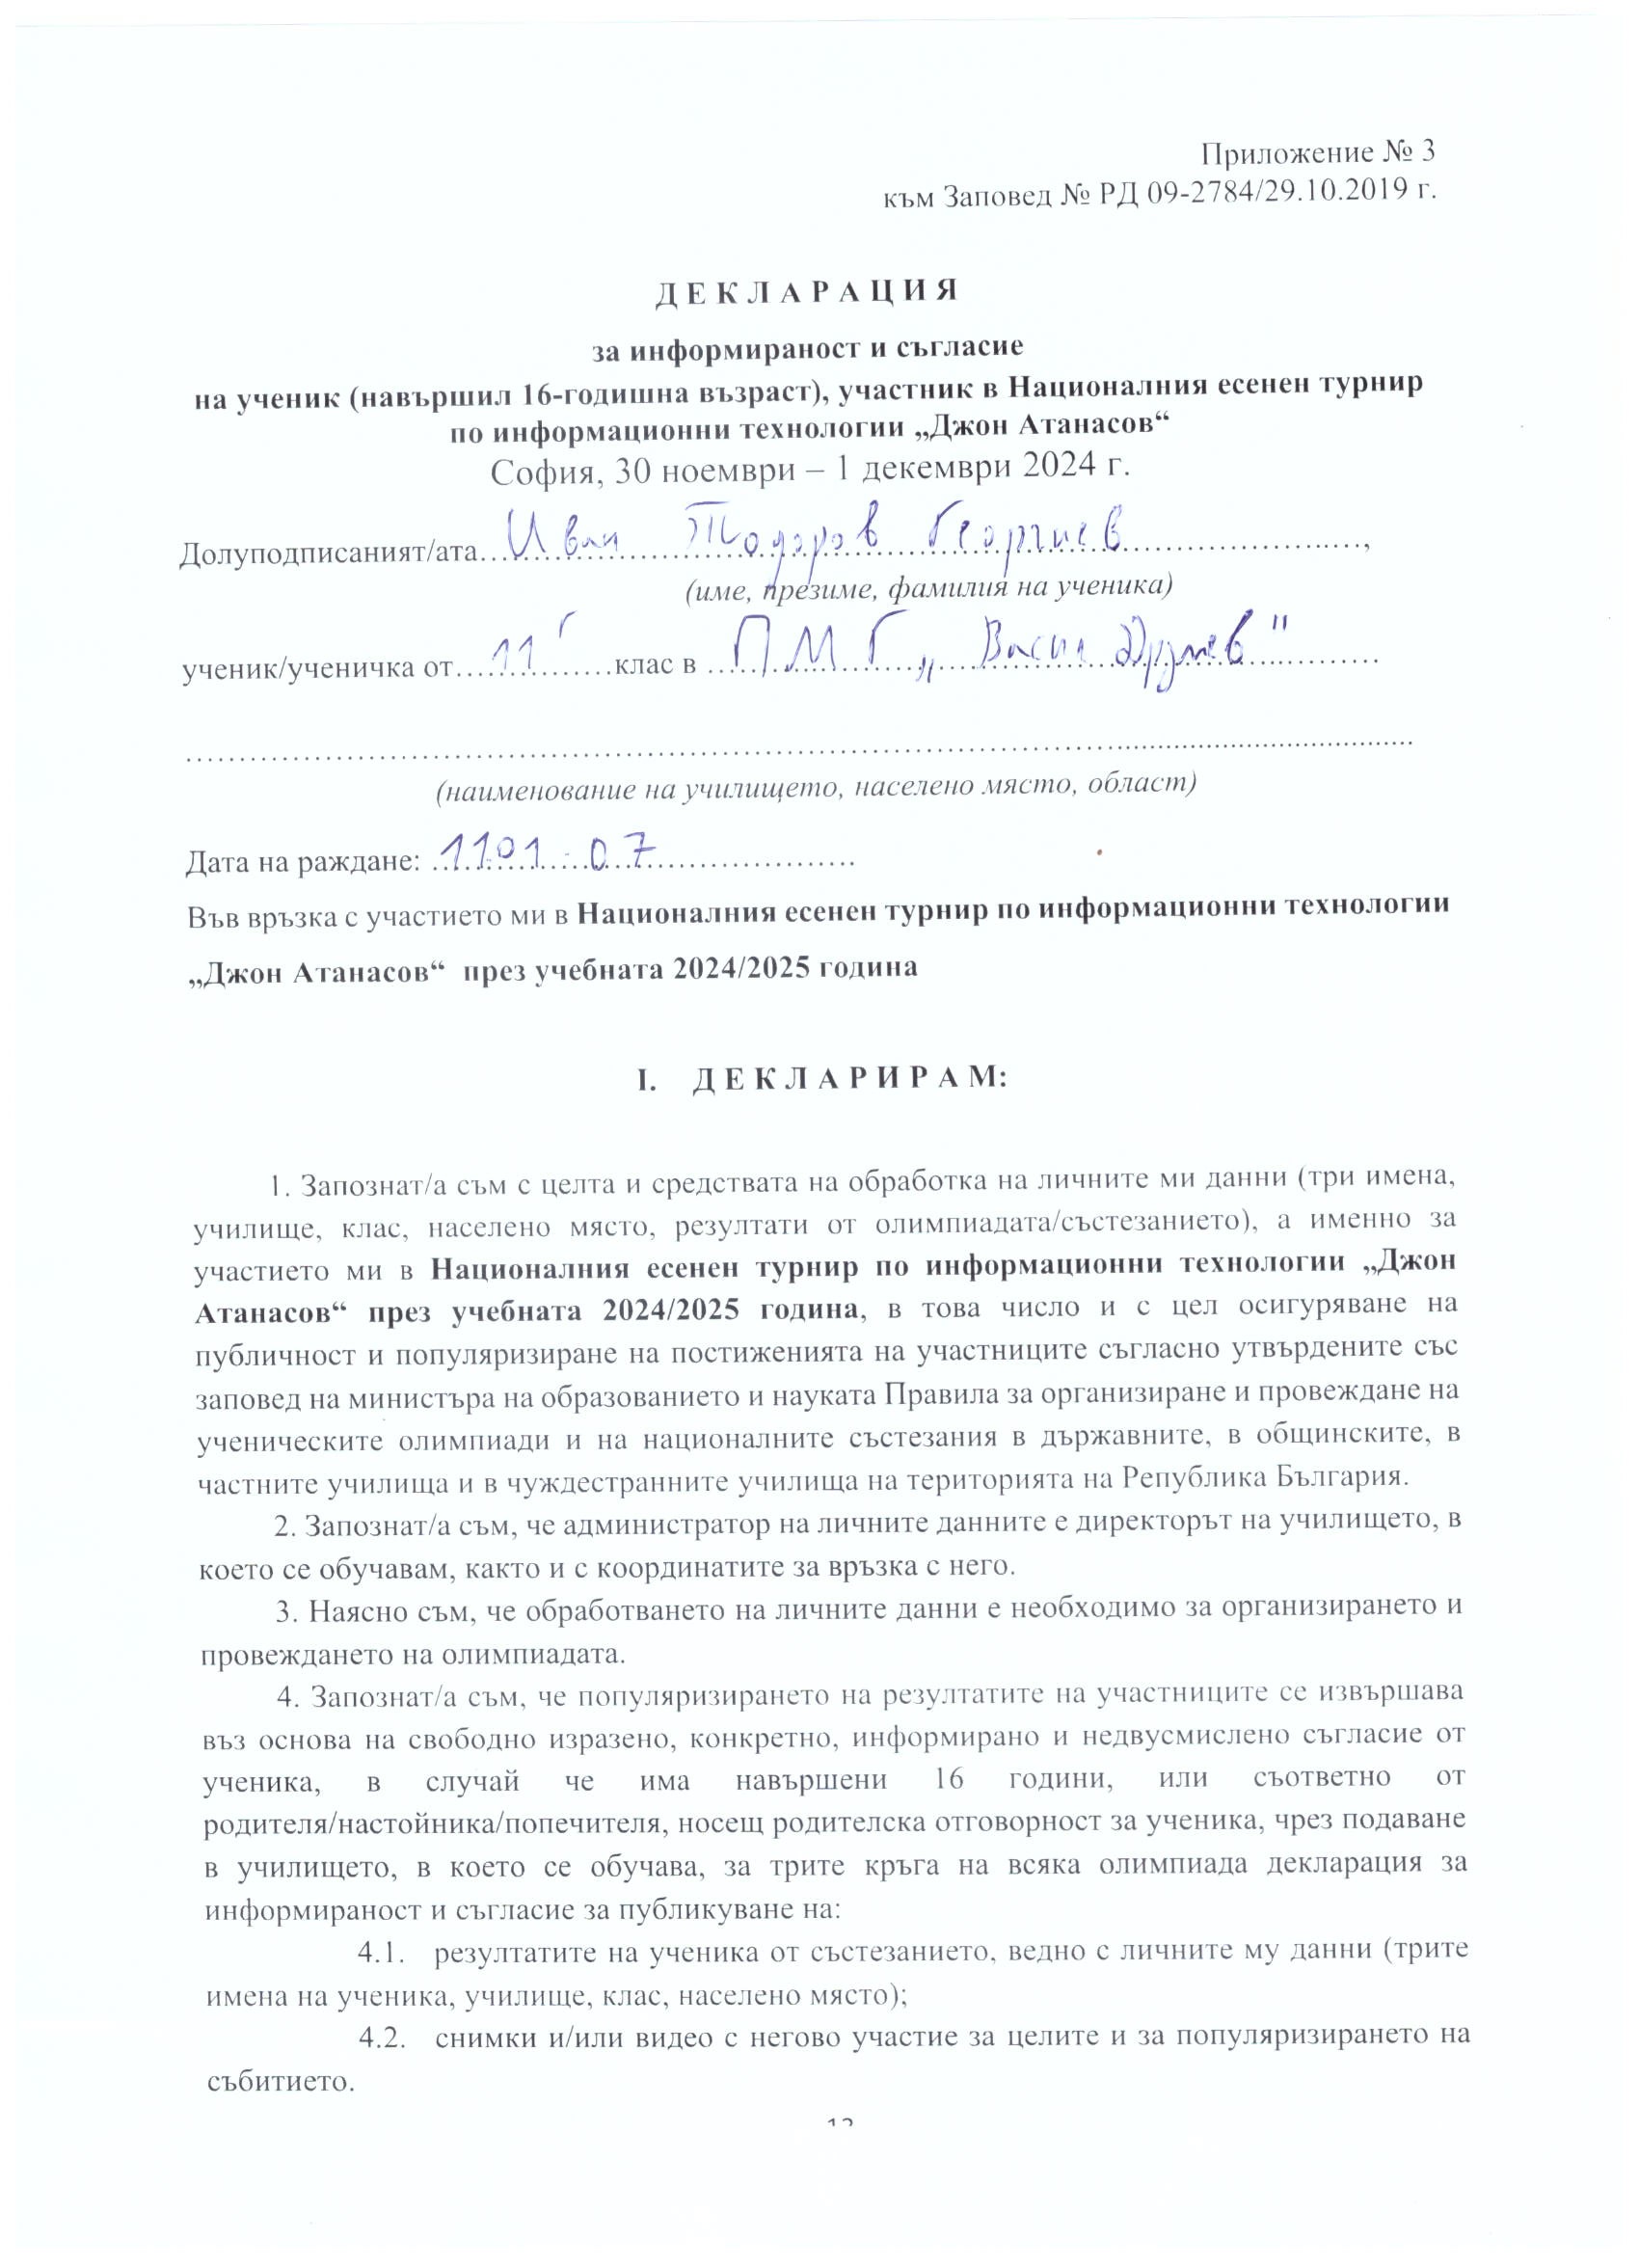 Приложение № 3
към Заповед № РД 09-2784/29.10.2019 г.
Д Е К Л А Р А Ц И Я
за информираност и съгласие
на ученик (навършил 16-годишна възраст), участник в Националния есенен турнир
по информационни технологии „Джон Атанасов“
София, 30 ноември – 1 декември 2024 г.
Долуподписаният/ата Иван Тодоров Георгиев,
(име, презиме, фамилия на ученика)
ученик/ученичка от 11 г клас в ПМГ „Васил Друмев"
(наименование на училището, населено място, област)
Дата на раждане: 11.01.07
Във връзка с участието ми в Националния есенен турнир по информационни технологии
„Джон Атанасов“ през учебната 2024/2025 година
I. Д Е К Л А Р И Р А М:
1. Запознат/а съм с целта и средствата на обработка на личните ми данни (три имена,
училище, клас, населено място, резултати от олимпиадата/състезанието), а именно за
участието ми в Националния есенен турнир по информационни технологии „Джон
Атанасов“ през учебната 2024/2025 година, в това число и с цел осигуряване на
публичност и популяризиране на постиженията на участниците съгласно утвърдените със
заповед на министъра на образованието и науката Правила за организиране и провеждане на
ученическите олимпиади и на националните състезания в държавните, в общинските, в
частните училища и в чуждестранните училища на територията на Република България.
2. Запознат/а съм, че администратор на личните данните е директорът на училището, в
което се обучавам, както и с координатите за връзка с него.
3. Наясно съм, че обработването на личните данни е необходимо за организирането и
провеждането на олимпиадата.
4. Запознат/а съм, че популяризирането на резултатите на участниците се извършава
въз основа на свободно изразено, конкретно, информирано и недвусмислено съгласие от
ученика, в случай че има навършени 16 години, или съответно от
родителя/настойника/попечителя, носещ родителска отговорност за ученика, чрез подаване
в училището, в което се обучава, за трите кръга на всяка олимпиада декларация за
информираност и съгласие за публикуване на:
4.1. резултатите на ученика от състезанието, ведно с личните му данни (трите
имена на ученика, училище, клас, населено място);
4.2. снимки и/или видео с негово участие за целите и за популяризирането на
събитието.